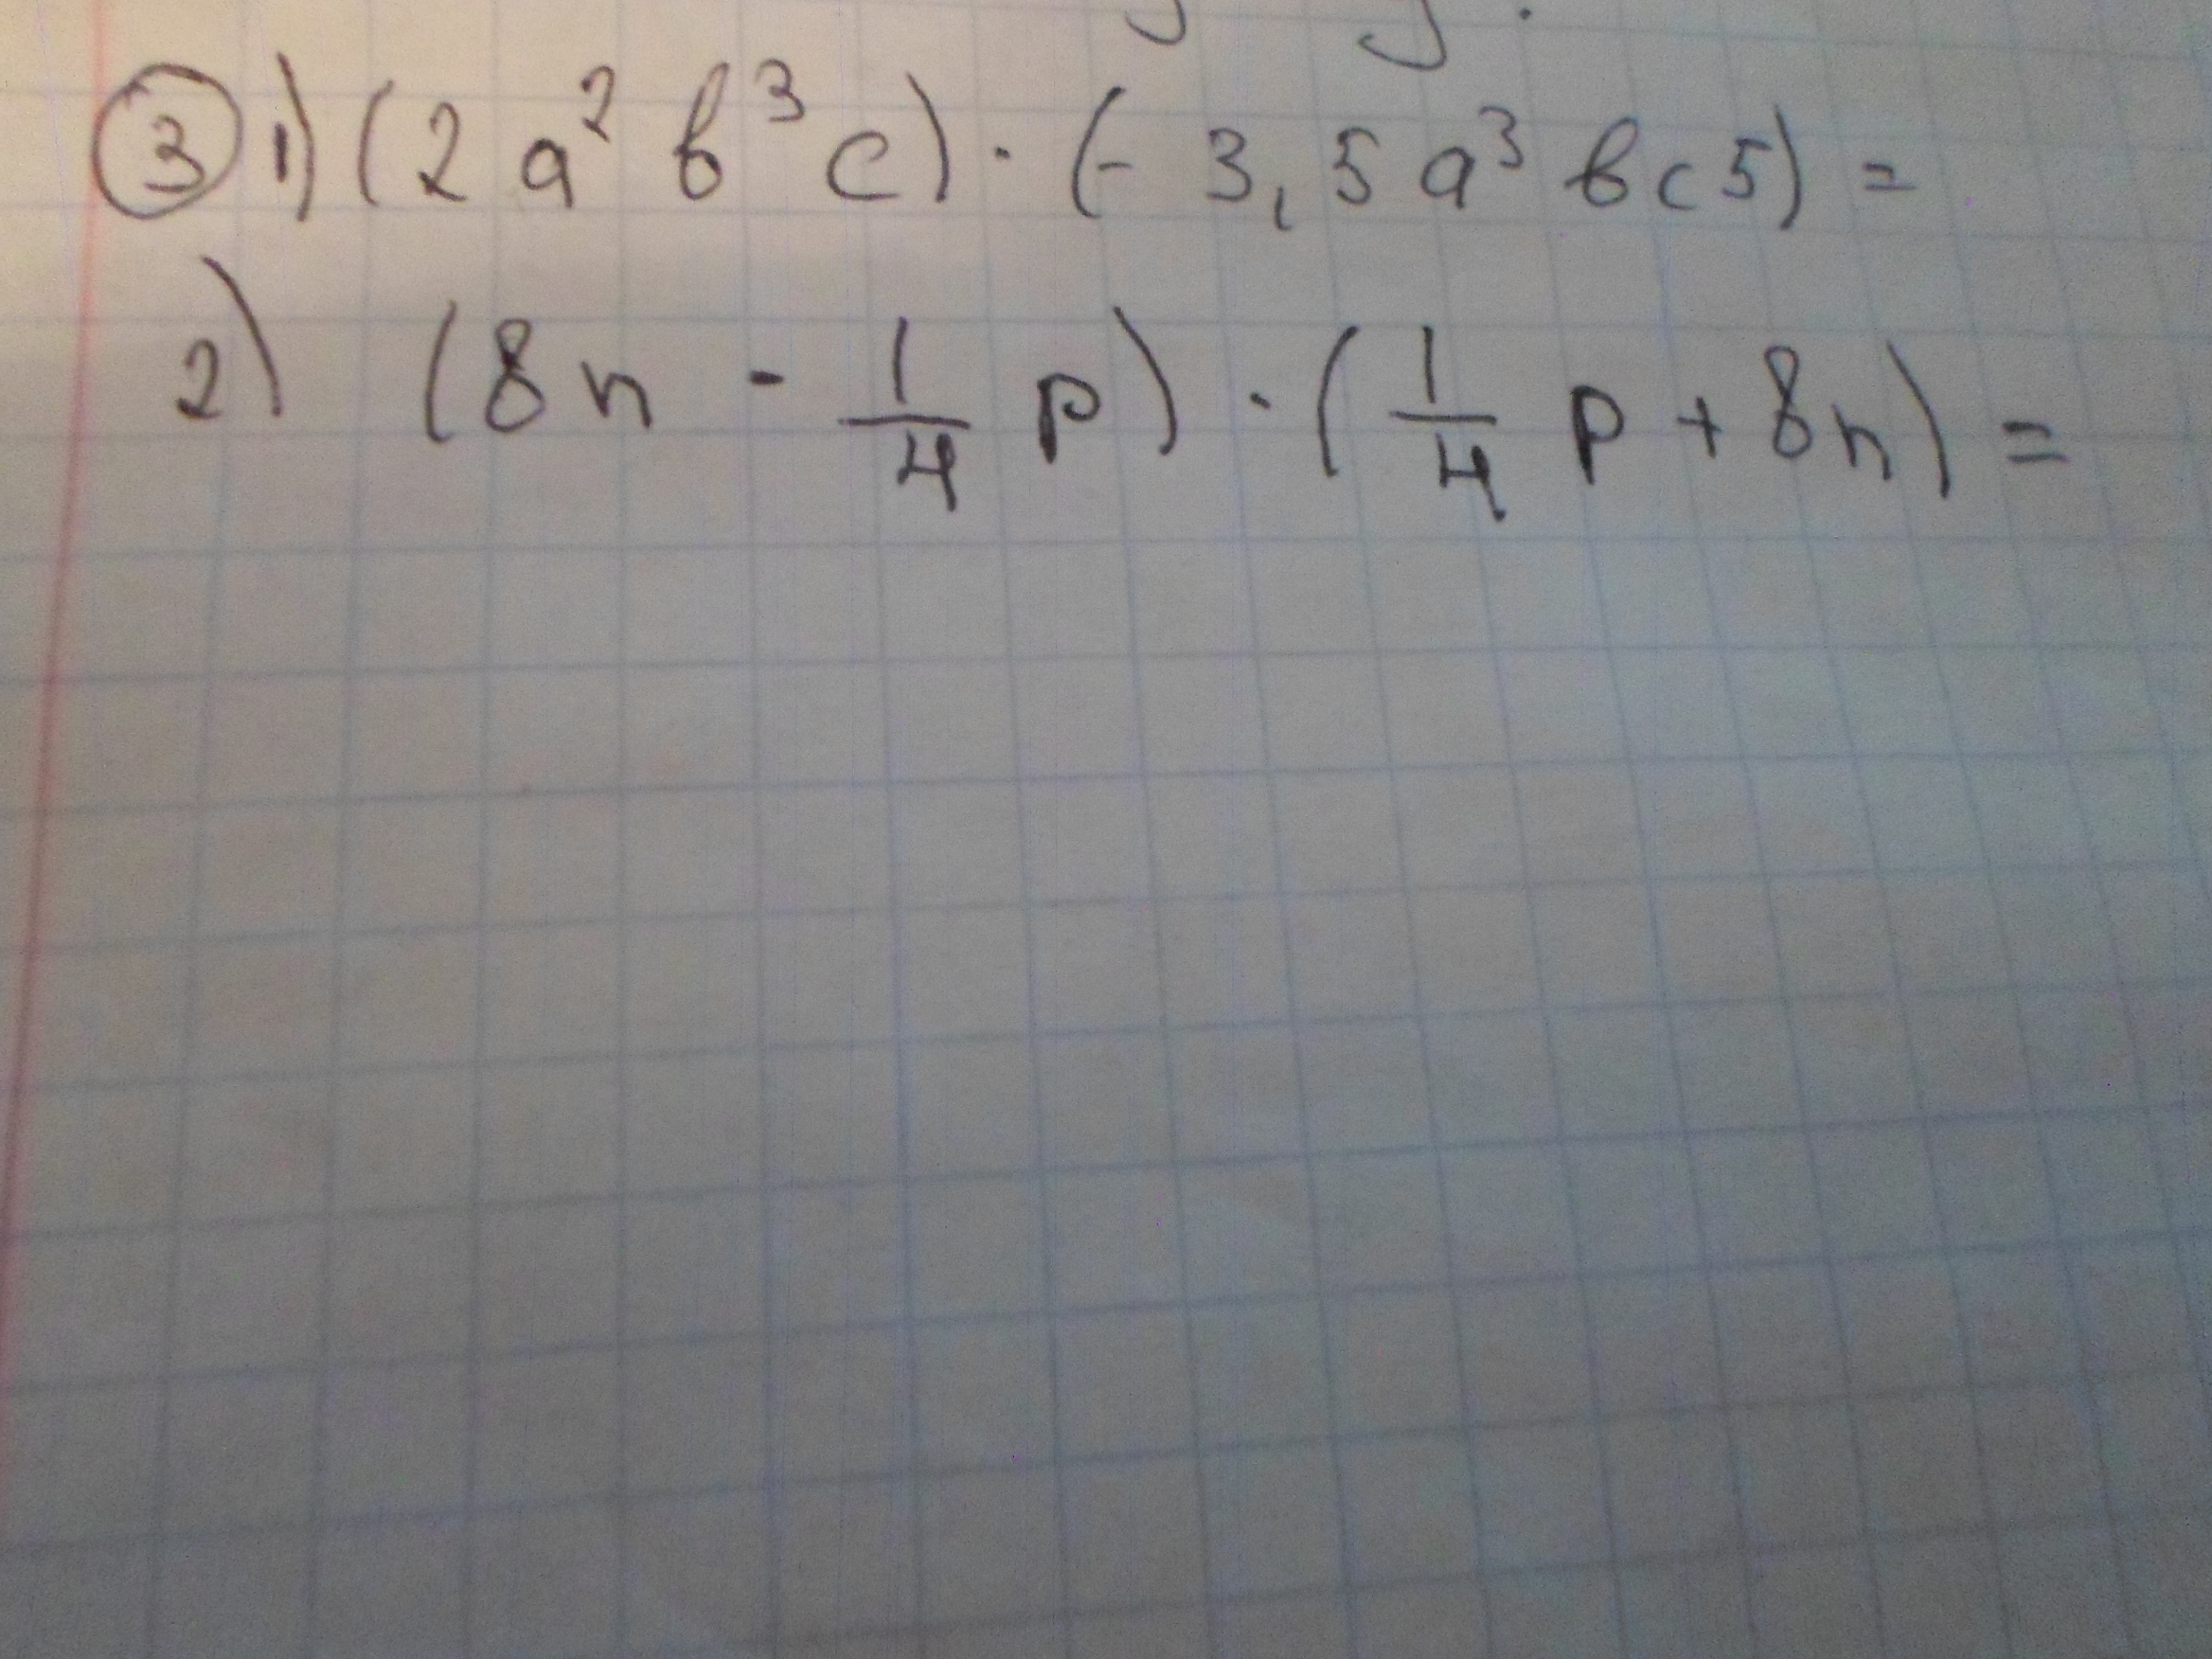 ③ 1) (2a²b³c) · (- 3,5a³bc5) =
2) (8n - 1/4 p) · (1/4 p + 8n) =